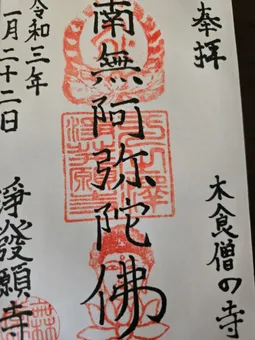 奉拝
木食僧の寺
南無阿弥陀佛
令和三年
一月二十二日
淨發願寺